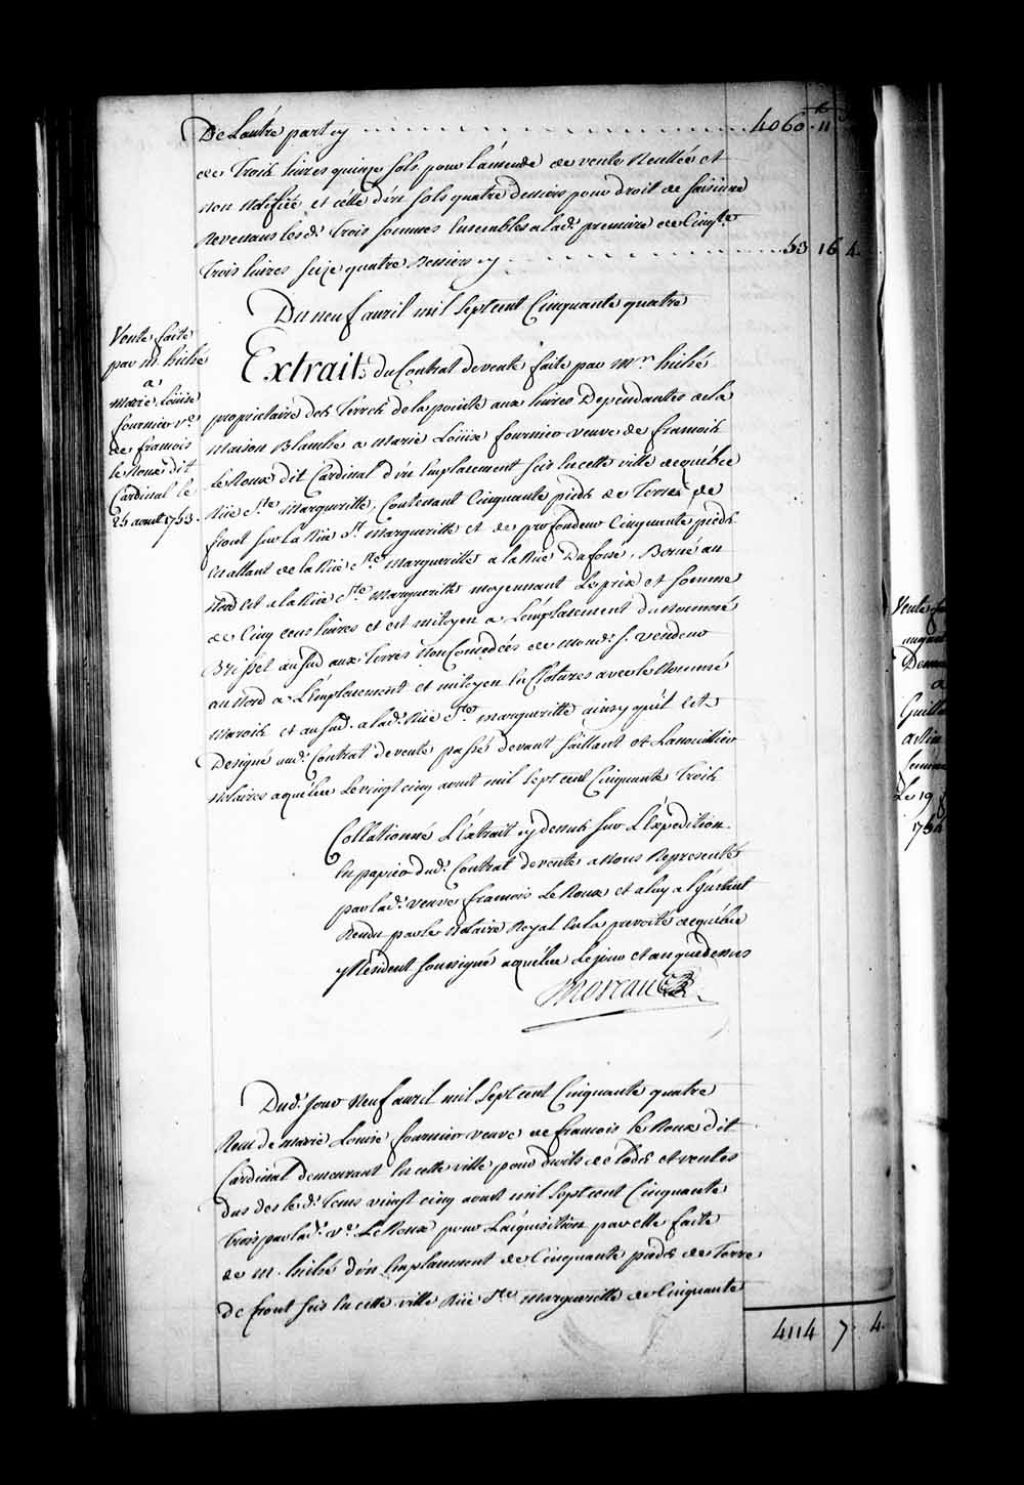 De Lautre part cy ... 4060 lt 11 s
de Trois livres quinze sols pour lamende de vente Recellée et
non Notifiée et celle d'un sols quatre deniers pour droit de saisinne
Revenans lesd. trois sommes Ensembles a lad. premiere de Cinqte
trois livres seize quatre Deniers cy ... 53 16 4
Du neuf avril mil sept cent Cinquante quatre
Vente faite
par M. hiché
a
Marie Loüise
fournier ve
de francois
le Roux dit
Cardinal le
25 aoust 1753.
Extrait du Contrat de vente faite par Mr. hiché
proprietaire des Terres de la pointe aux lievres Dependantes de la
Maison Blanche a Marie Loüise fournier veuve de francois
le Roux dit Cardinal d'un Emplacement scis En cette ville de quebec
Rüe Ste Margueritte, Contenant Cinquante pieds de Terres de
front sur la Rüe Ste Margueritte et de profondeur Cinquante pieds
En allant de la Rüe Ste Margueritte a la Rüe Dufossé, Borné au
Nord Est a la Rüe Ste Margueritte moyennant Le prix et somme
de Cinq cens livres et est mitoyen a L'emplacement du nommé
au sud aux Terres Non Concedées de mond. S. vendeur
au Nord a L'Emplacement et mitoyen En Clotures avec le Nommé
Marois et au sud a lad. Rüe Ste Margueritte ainsy qu'il Est
Designé aud. Contrat de vente passé devant Saillant et Lanouillier
Notaires a quebec Le vingt cinq aoust mil sept cent Cinquante Trois
Collationné L'Extrait cy dessus sur L'Expedition
En papier dud. Contrat de vente a Nous Representé
par lad. veuve francois Le Roux et a luy a l'Instant
Rendu par le Notaire Royal En la prevosté de quebec
y Resident soussigné a quebec Le jour et an que dessus
Moreau
Dud. jour Neuf avril mil sept cent Cinquante quatre
Recu de Marie Louise fournier veuve de francois le Roux dit
Cardinal demeurant En cette ville pour droits de lods et ventes
dus des le d. Tems vingt cinq aoust mil sept cent Cinquante
trois par lad. ve Le Roux pour L'acquisition par elle faite
de M. hiché d'un Emplacement de Cinquante pieds de Terre
de front scis En cette ville Rüe Ste Margueritte de Cinquante
4114 7 4
Vente
a
Le 19